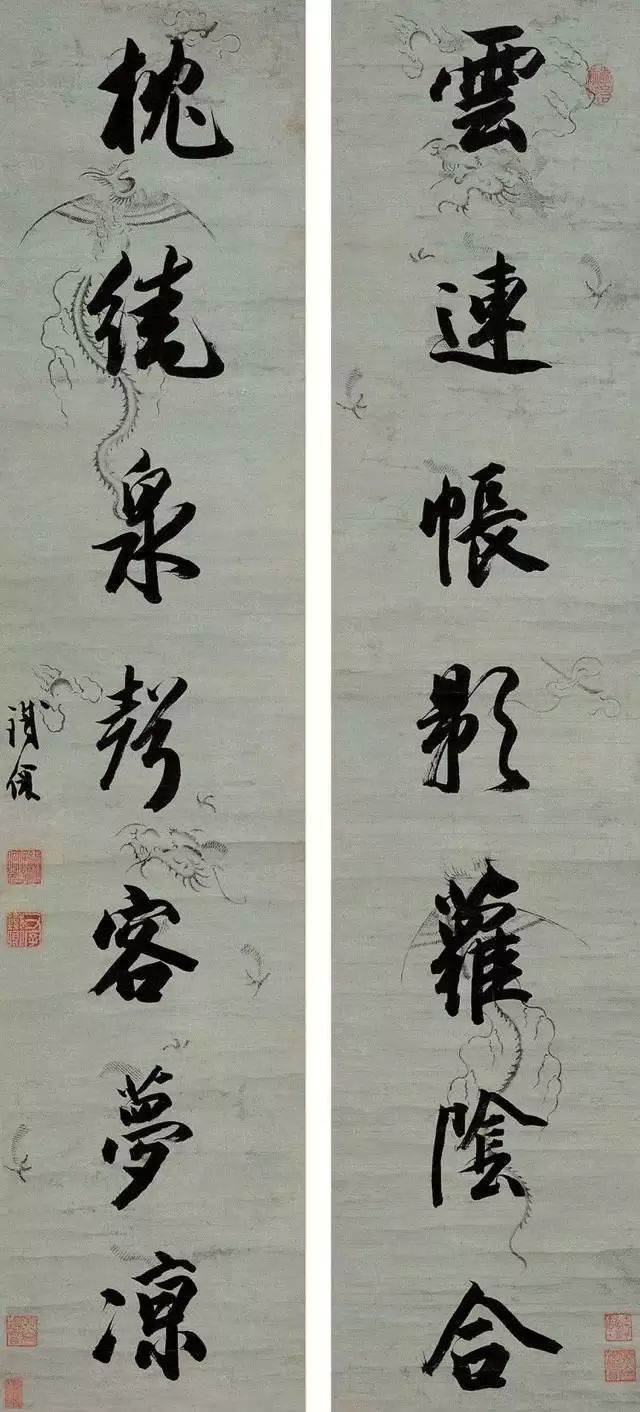 雲連帳影蘿陰合
枕繞泉聲客夢凉
溥儒